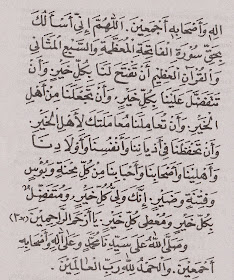 اللهِ وَأَصْحَابِهِ أَجْمَعِيْنَ. اَللّٰهُمَّ إِنِّيْ أَسْأَلُكَ
بِحَقِّ سُوْرَةِ الْفَاتِحَةِ الْمُعَظَّمَةِ وَالسَّبْعِ الْمَثَانِيْ
وَالْقُرْآنِ الْعَظِيْمِ أَنْ تَفْتَحَ لَنَا بِكُلِّ خَيْرٍ، وَأَنْ
تَتَفَضَّلَ عَلَيْنَا بِكُلِّ خَيْرٍ، وَأَنْ تَجْعَلَنَا مِنْ أَهْلِ
الْخَيْرِ، وَأَنْ تُعَامِلَنَا مُعَامَلَتَكَ لِأَهْلِ الْخَيْرِ.
وَأَنْ تَحْفَظَنَا فِيْ أَدْيَانِنَا وَأَنْفُسِنَا وَأَوْلَادِنَا
وَأَهْلِيْنَا وَأَصْحَابِنَا وَأَحْبَابِنَا مِنْ كُلِّ مِحْنَةٍ وَبُؤْسٍ
وَفِتْنَةٍ وَضَيْرٍ. إِنَّكَ وَلِيُّ كُلِّ خَيْرٍ. وَمُتَفَضِّلٌ
بِكُلِّ خَيْرٍ وَمُعْطِيْ كُلِّ خَيْرٍ. يَا أَرْحَمَ الرَّاحِمِيْنَ (×٣)
وَصَلَّى اللهُ عَلَى سَيِّدِنَا مُحَمَّدٍ وَعَلَى آلِهِ وَأَصْحَابِهِ
أَجْمَعِيْنَ. وَالْحَمْدُ لِلّٰهِ رَبِّ الْعَالَمِيْنَ.